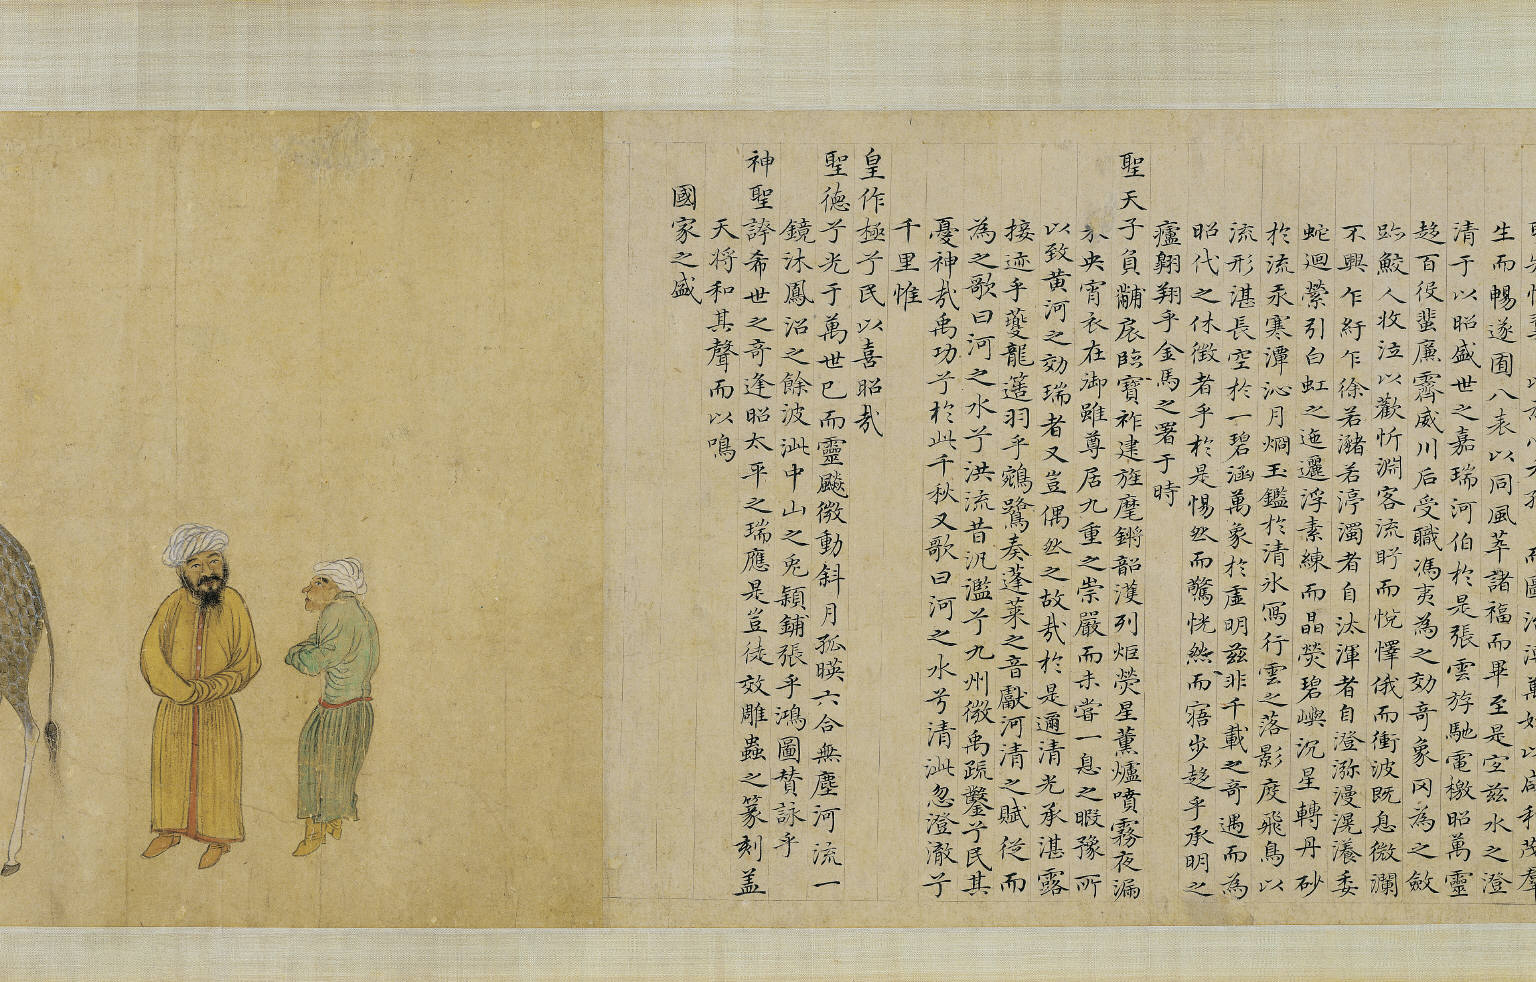 生而暢遂囿八表以同風萃諸福而畢至是宜茲水之澄
清于以昭盛世之嘉瑞河伯於是張雲斿馳電檄昭萬靈
趍百役蜚廉霽威川后受職馮夷為之効奇象冈為之斂
跡鮫人收泣以歡忻淵客流眄而悅懌俄而衝波既息微瀾
不興乍紆乍徐若瀦若渟濁者自汰渾者自澄瀰漫滉瀁委
蛇迴縈引白虹之迤邐浮素練而晶熒碧嶼沉星轉丹砂
於流汞寒潭沁月烱玉鑑於清氷寫行雲之落影度飛鳥以
流形湛長空於一碧涵萬象於虛明茲非千載之奇遇而為
昭代之休徵者乎於是惕然而驚恍然而寤步趍乎承明之
廬翱翔乎金馬之署于時
聖天子負黼扆臨寶祚建旌麾鏘韶濩列炬熒星薰爐噴霧夜漏
未央宵衣在御雖尊居九重之崇嚴而未嘗一息之暇豫所
以致黃河之効瑞者又豈偶然之故哉於是邇清光承湛露
接迹乎夔龍簉羽乎鵷鷺奏蓬萊之音獻河清之賦從而
為之歌曰河之水兮洪流昔汎濫兮九州微禹疏鑿兮民其
憂神哉禹功兮於此千秋又歌曰河之水兮清泚忽澄澈兮
千里惟
皇作極兮民以喜昭哉
聖德兮光于萬世已而靈飈微動斜月孤暎六合無塵河流一
鏡沐鳳沼之餘波泚中山之兎穎鋪張乎鴻圖賛詠乎
神聖誇希世之奇逢昭太平之瑞應是豈徒效雕蟲之篆刻盖
天將和其聲而以鳴
國家之盛